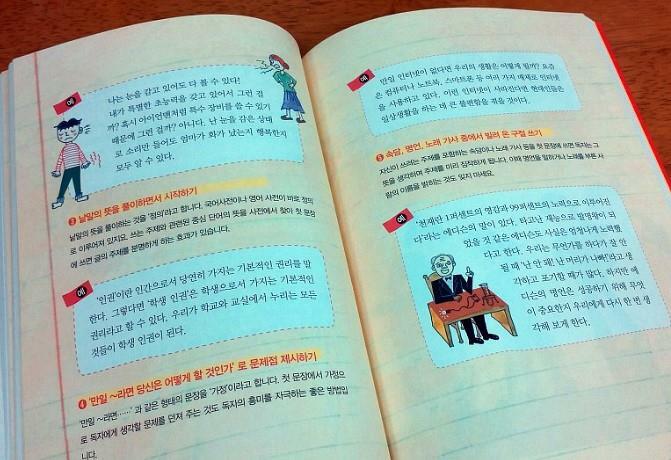 예
나는 눈을 감고 있어도 다 볼 수 있다!
내가 특별한 초능력을 갖고 있어서 그런 걸
까? 혹시 아이언맨처럼 특수 장비를 쓸 수 있기
때문에 그런 걸까? 아니다. 난 눈을 감은 상태
로 소리만 들어도 엄마가 화가 났는지 행복한지
모두 알 수 있다.
3 낱말의 뜻을 풀이하면서 시작하기
낱말의 뜻을 풀이하는 것을 '정의'라고 합니다. 국어사전이나 영어 사전이 바로 정의
로 이루어져 있지요. 쓰는 주제와 관련된 중심 단어의 뜻을 사전에서 찾아 첫 문장
에 쓰면 글의 주제를 분명하게 하는 효과가 있습니다.
예
'인권'이란 인간으로서 당연히 가지는 기본적인 권리를 말
한다. 그렇다면 '학생 인권'은 학생으로서 가지는 기본적인
권리라고 할 수 있다. 우리가 학교와 교실에서 누리는 모든
것들이 학생 인권이 된다.
4 '만일 ~라면 당신은 어떻게 할 것인가' 로 문제점 제시하기
'만일 ~라면……' 과 같은 형태의 문장을 '가정'이라고 합니다. 첫 문장에서 가정으
로 독자에게 생각할 문제를 던져 주는 것도 독자의 흥미를 자극하는 좋은 방법입
니다.
예
만일 인터넷이 없다면 우리의 생활은 어떻게 될까? 요즘
은 컴퓨터나 노트북, 스마트폰 등 여러 가지 매체로 인터넷
을 사용하고 있다. 이런 인터넷이 사라진다면 현대인들은
일상생활을 하는 데 큰 불편함을 겪을 것이다.
5 속담, 명언, 노래 가사 중에서 빌려 온 구절 쓰기
자신이 쓰려는 주제를 포함하는 속담이나 노래 가사 등을 첫 문장에 쓰면 독자는 그
뜻을 생각하며 주제를 미리 짐작하게 됩니다. 이때 명언을 말하거나 노래를 부른 사
람의 이름을 밝히는 것도 잊지 마세요.
예
'천재란 1퍼센트의 영감과 99퍼센트의 노력으로 이루어진
다'라는 에디슨의 말이 있다. 타고난 재능으로 발명왕이 되
었을 것 같은 에디슨도 사실은 엄청나게 노력했
다고 한다. 우리는 무언가를 하다가 잘 안
될 때 '난 안 돼', '난 머리가 나빠!'라고 생
각하고 포기할 때가 많다. 하지만 에
디슨의 명언은 성공하기 위해 무엇
이 중요한지 우리에게 다시 한 번 생
각해 보게 한다.